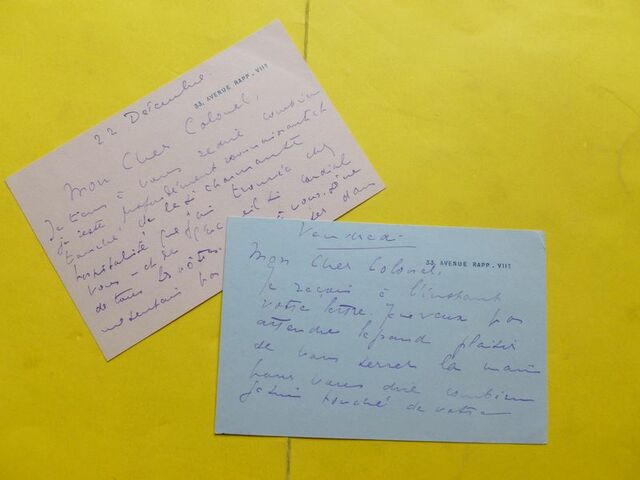 22 Décembre.
33, AVENUE RAPP - VIIE
Mon Cher Colonel,
Je tiens à vous redire combien
je reste profondément reconnaissant et
touché, de la si charmante
hospitalité que j'ai trouvée chez
vous - et de l'accueil si cordial
de tous les vôtres. à vous.
me sentais pas dans
Vendredi
33, AVENUE RAPP - VIIE
Mon Cher Colonel,
Je reçois à l'instant
votre lettre. Je ne veux pas
attendre le grand plaisir
de vous serrer la main
pour vous dire combien
je suis touché de votre